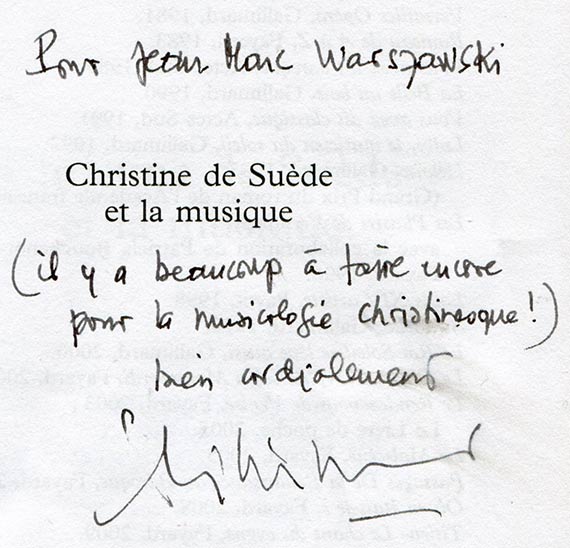 Pour Jean Marc Warszawski
Christine de Suède
et la musique
(il y a beaucoup à faire encore
pour la musicologie christinesque !)
bien cordialement